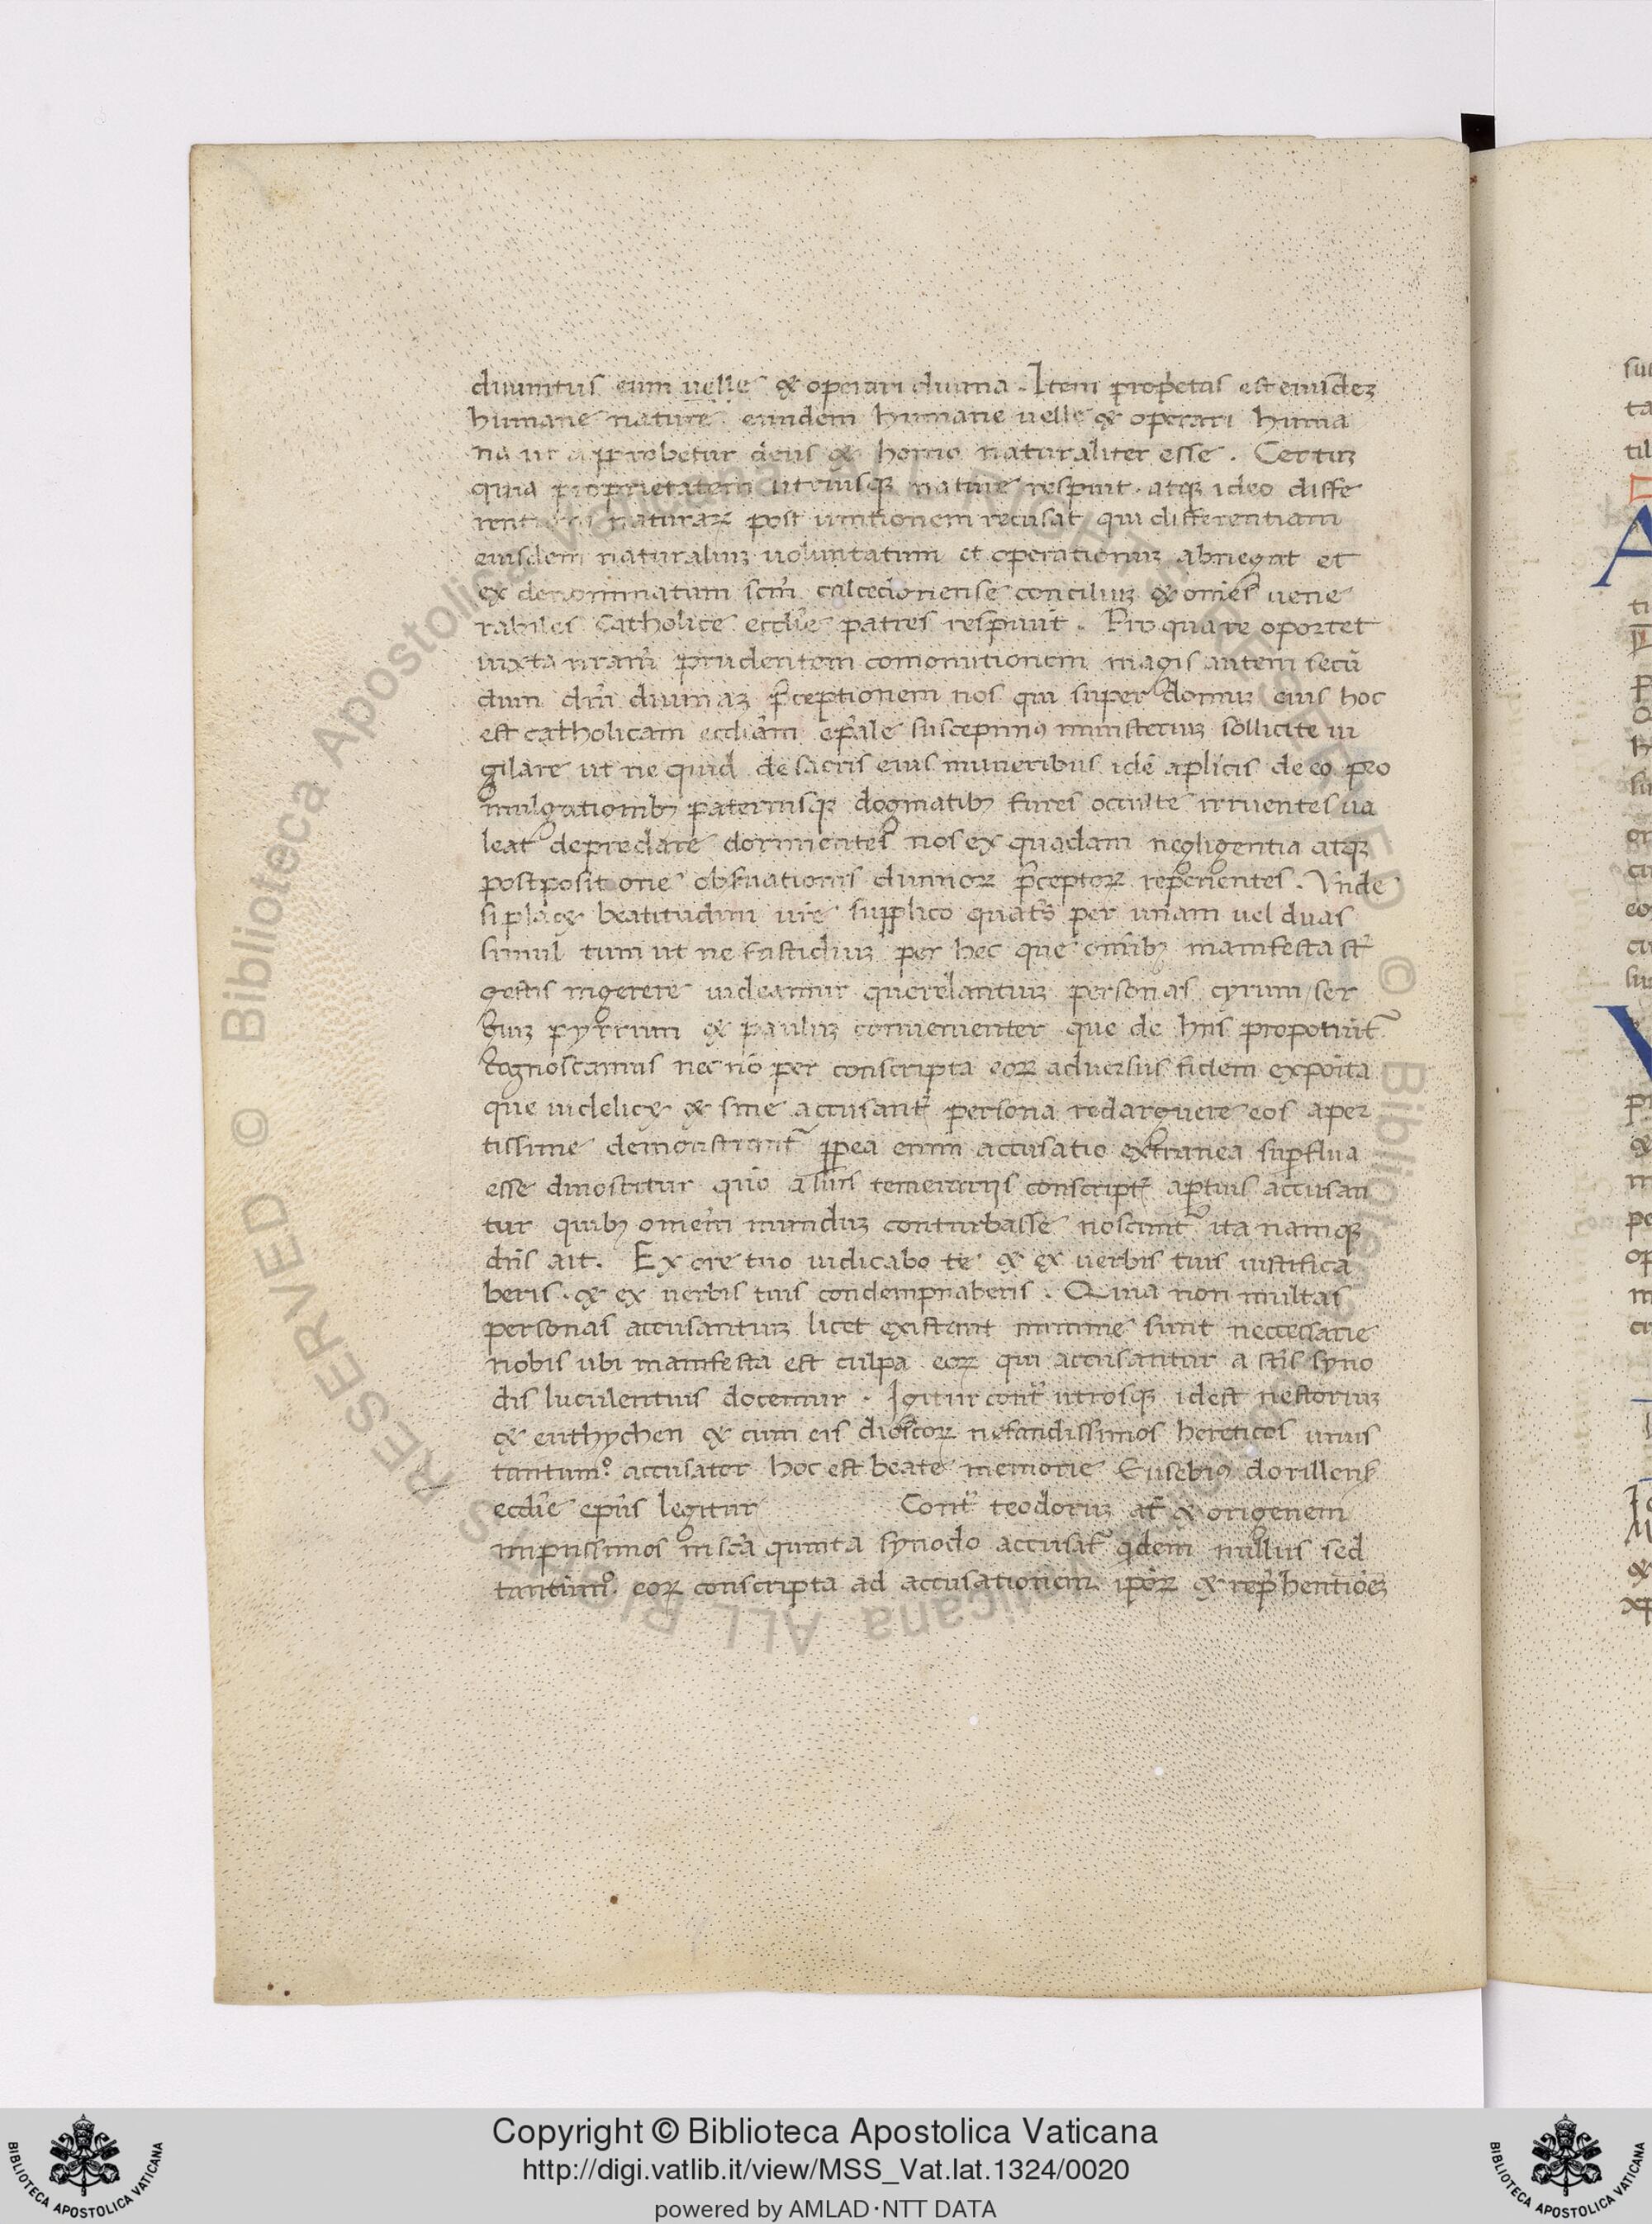 diuinitus eum uelle & operari diuina. Item propetas est eiusdez
humane nature eundem humane uelle & operari huma
na ut approbetur deus & homo naturaliter esse. Certuz
quia proprietatem utriusq; nature respuit. atq; ideo diffe
rentiam naturaꝝ post unitionem recusat qui differentiam
eiusdem naturaliuz uoluntatum et operationuz abnegat et
ex denominatum scm̄ calcedonense conciliuz & om̄es uene
rabiles Catholice eccl̄ie patres respuit. Pro qua re oportet
iuxta ur̄am prudentem comonitionem magis autem secū
dum dn̄i diuinaz p̄ceptionem nos qui super domuz eius hoc
est catholicam eccl̄iam ep̄ale suscepimꝰ ministeriuz sollicite ui
gilare ut ne quid de sacris eius muneribus idē aplīcis de eo pro
mulgationibꝫ paternisq; dogmatibꝫ fures occulte irruentes ua
leat depredare dormientes nos ex quadam negligentia atq;
postpositione obseruationis diuinoꝝ p̄ceptoꝝ reperientes. Vnde
si placꝫ beatitudini ur̄e supplico quat̄s per unam uel duas
simul tum ut ne fastidiuz per hec que om̄ibꝫ manifesta st̄
gestis ingerere uideamur querelantiuz personas cyrum/ser
giuz pyrrum & pauluz conuenienter que de hiis propoūnt̄
cognoscamus nec nō per conscripta eoꝝ aduersus fidem expoīta
que uidelicꝫ & sine accusant̄ persona redarguere eos aper
tissime demonstrant̄ ꝓpea enim accusatio extranea sup̄flua
esse dmostratur quō a suis temerariis conscript̄ aptius accusan
tur quibꝫ omēm munduz conturbasse noscunt̄ ita namq;
dn̄s ait. Ex ore tuo iudicabo te & ex uerbis tuis iustifica
beris. & ex uerbis tuis condempnaberis. Quia non multas
personas accusantiuz licet existant minime sunt neccessarie
nobis ubi manifesta est culpa eoꝝ qui accusantur a sc̄is syno
dis luculentius docemur. Igitur cont̄ utrosq; idest nestoriuz
& euthychen & cum eis dioscoꝝ nefandissimos hereticos unus
tantum̊ accusator hoc est beate memorie Eusebiꝰ dorillens̄
eccl̄ie ep̄us legitur Cont̄ teodoruz at̄ & origenem
impiissimos in sc̄a quinta synodo accusat̄ qdem nullus sed
tantūm̊. eoꝝ conscripta ad accusationem ip̄oꝝ & rep̄hentiōez
Copyright © Biblioteca Apostolica Vaticana
http://digi.vatlib.it/view/MSS_Vat.lat.1324/0020
powered by AMLAD·NTT DATA
BIBLIOTECA APOSTOLICA VATICANA
BIBLIOTECA APOSTOLICA VATICANA